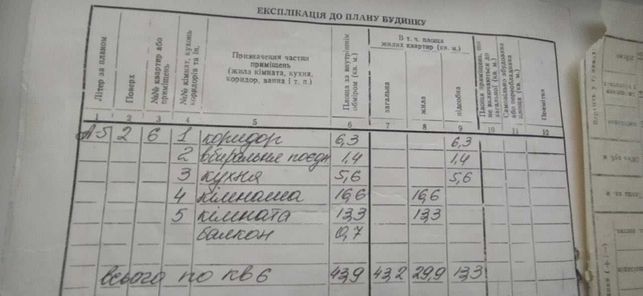 ЕКСПЛІКАЦІЯ ДО ПЛАНУ БУДИНКУ
Літер за планом
Поверх
№№ квартир або приміщень
№№ кімнат, кухонь коридорів та ін.
Призначення частин приміщень (жила кімната, кухня, коридор, ванна і т. п.)
Площа за внутрішнім обміром (кв. м.)
В т. ч. площа жилих квартир (кв. м.)
загальна
жила
підсобна
Площа приміщень, що не включаються до загальної (кв. м.)
Самовільно збудована або переобладнана площа (кв. м.)
Примітка
1 2 3 4 5 6 7 8 9 10 11 12
А-5 2 6 1 коридор 6,3 6,3
2 вбиральня поєдн 1,4 1,4
3 кухня 5,6 5,6
4 кімната 16,6 16,6
5 кімната 13,3 13,3
балкон 0,7
всього по кв 6 43,9 43,2 29,9 13,3